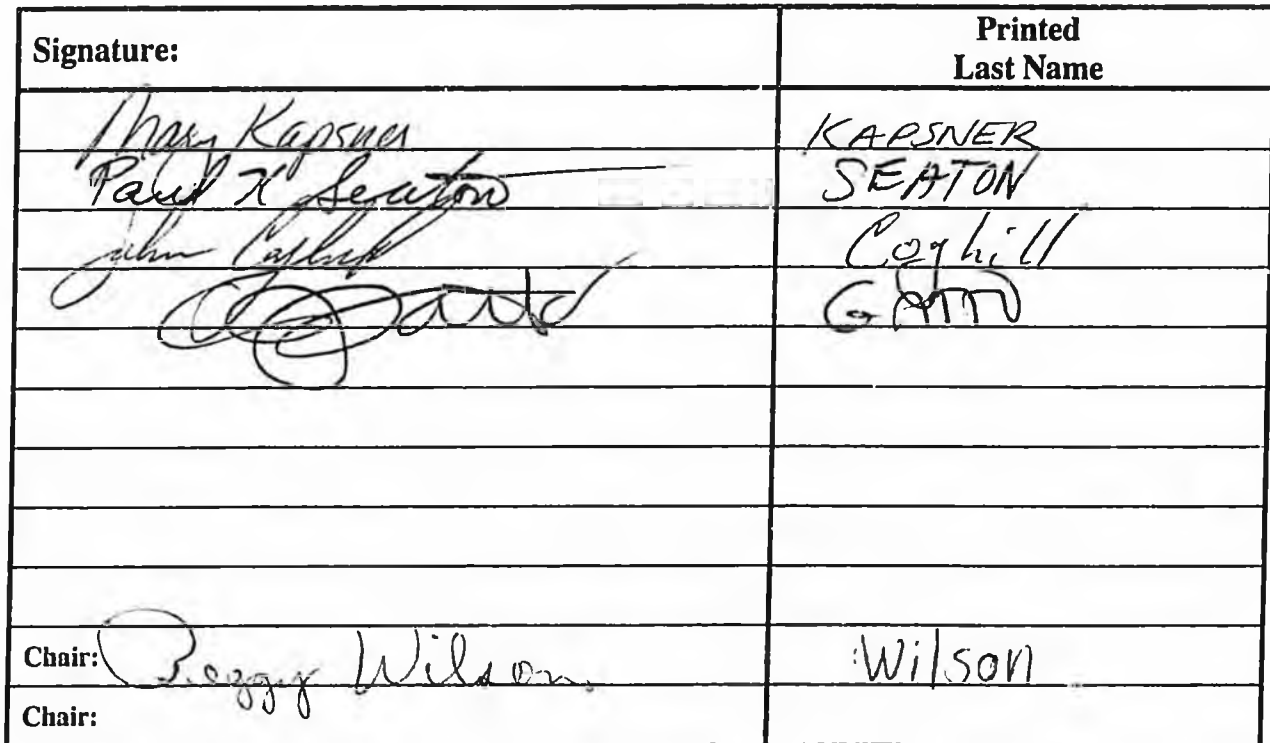 Signature: Printed Last Name
Mary Kapsner KAPSNER
Paul K Seaton SEATON
John Coghill Coghill
Gatto GATTO
Chair: Peggy Wilson Wilson
Chair: